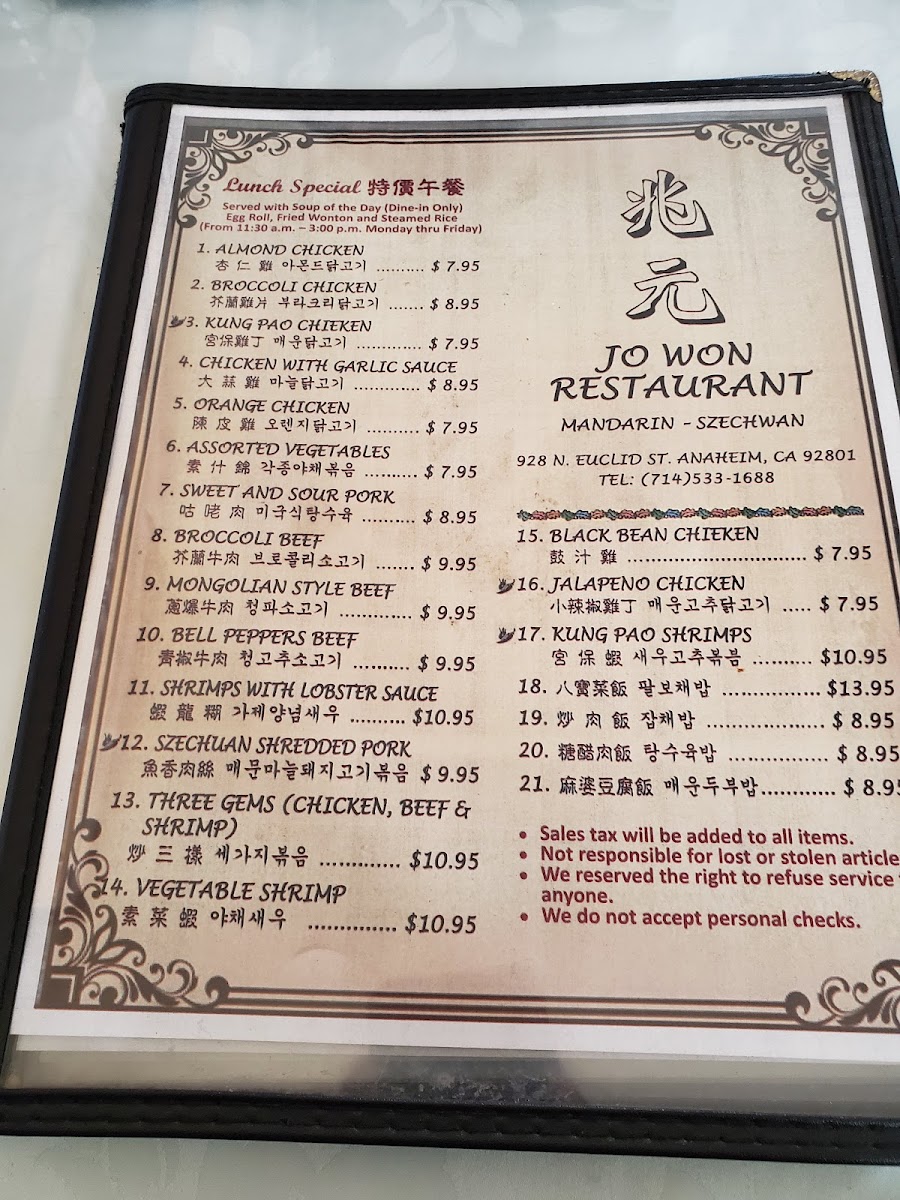 Lunch Special 特價午餐
Served with Soup of the Day (Dine-in Only)
Egg Roll, Fried Wonton and Steamed Rice
(From 11:30 a.m. – 3:00 p.m. Monday thru Friday)
1. ALMOND CHICKEN
杏 仁 雞 아몬드닭고기 .......... $ 7.95
2. BROCCOLI CHICKEN
芥蘭雞片 부라크리닭고기 ....... $ 8.95
3. KUNG PAO CHIEKEN
宮保雞丁 매운닭고기 ............. $ 7.95
4. CHICKEN WITH GARLIC SAUCE
大 蒜 雞 마늘닭고기 ............. $ 8.95
5. ORANGE CHICKEN
陳 皮 雞 오렌지닭고기 .......... $ 7.95
6. ASSORTED VEGETABLES
素 什 錦 각종야채볶음 .......... $ 7.95
7. SWEET AND SOUR PORK
咕 咾 肉 미국식탕수육 .......... $ 8.95
8. BROCCOLI BEEF
芥蘭牛肉 브로콜리소고기 ....... $ 9.95
9. MONGOLIAN STYLE BEEF
蔥爆牛肉 청파소고기 ............. $ 9.95
10. BELL PEPPERS BEEF
青椒牛肉 청고추소고기 .......... $ 9.95
11. SHRIMPS WITH LOBSTER SAUCE
蝦 龍 糊 가제양념새우 .......... $10.95
12. SZECHUAN SHREDDED PORK
魚香肉絲 매문마늘돼지고기볶음 $ 9.95
13. THREE GEMS (CHICKEN, BEEF &
SHRIMP)
炒 三 樣 세가지볶음 ............. $10.95
14. VEGETABLE SHRIMP
素 菜 蝦 야채새우 .............. $10.95
兆
元
JO WON
RESTAURANT
MANDARIN – SZECHWAN
928 N. EUCLID ST. ANAHEIM, CA 92801
TEL: (714)533-1688
15. BLACK BEAN CHIEKEN
鼓 汁 雞 ............................. $ 7.95
16. JALAPENO CHICKEN
小辣椒雞丁 매운고추닭고기 ..... $ 7.95
17. KUNG PAO SHRIMPS
宮 保 蝦 새우고추볶븜 .......... $10.95
18. 八寶菜飯 팔보채밥 ................ $13.95
19. 炒 肉 飯 잡채밥 ................... $ 8.95
20. 糖醋肉飯 탕수육밥 ................ $ 8.95
21. 麻婆豆腐飯 매운두부밥............ $ 8.95
• Sales tax will be added to all items.
• Not responsible for lost or stolen article
• We reserved the right to refuse service
anyone.
• We do not accept personal checks.